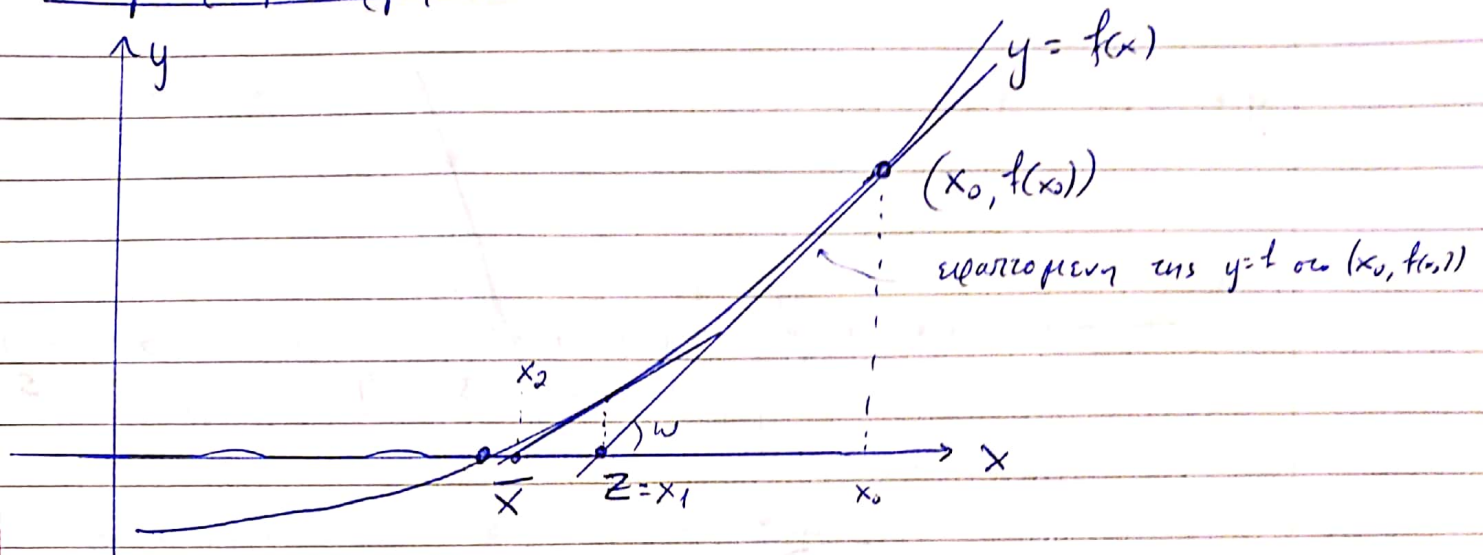 y
y = f(x)
(x₀, f(x₀))
εφαπτομενη της y=f στο (x₀, f(x₀))
x₂
ω
x
x̄
z=x₁
x₀